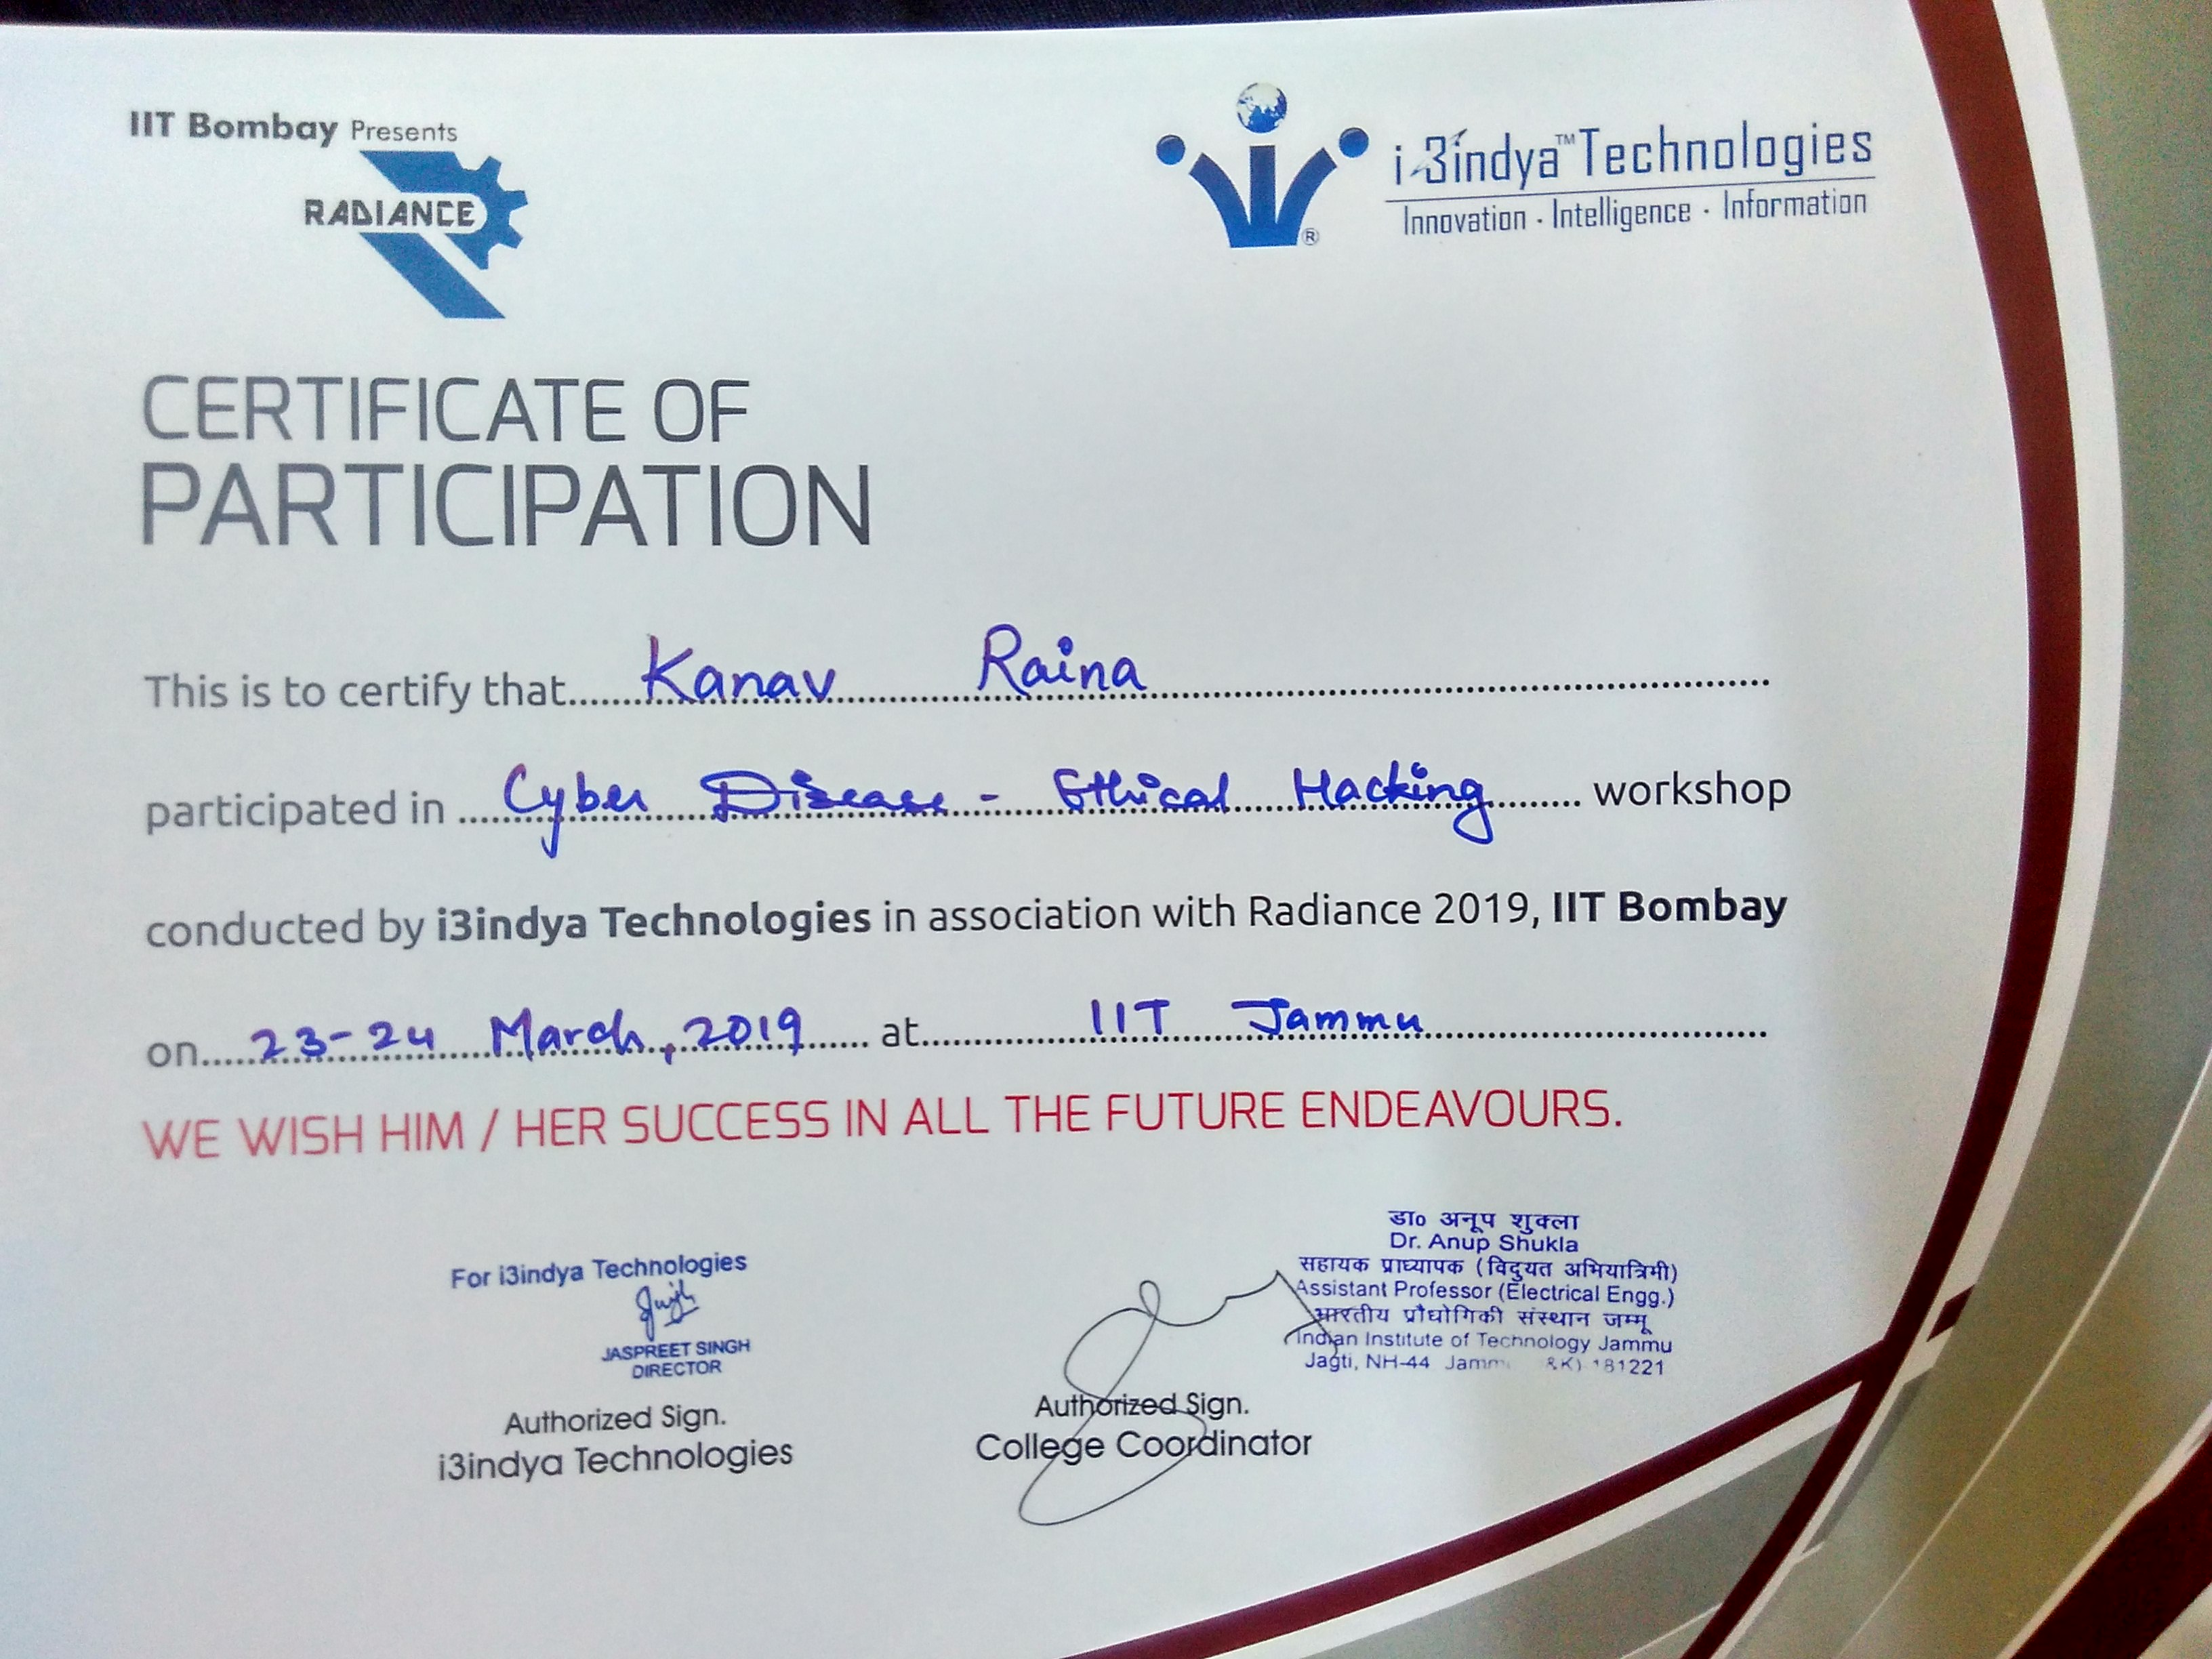 IIT Bombay Presents
RADIANCE
i3indya™ Technologies
Innovation · Intelligence · Information
®
CERTIFICATE OF
PARTICIPATION
This is to certify that Kanav Raina
participated in Cyber Disease - Ethical Hacking workshop
conducted by i3indya Technologies in association with Radiance 2019, IIT Bombay
on 23-24 March, 2019 at IIT Jammu
WE WISH HIM / HER SUCCESS IN ALL THE FUTURE ENDEAVOURS.
For i3indya Technologies
JASPREET SINGH
DIRECTOR
Authorized Sign.
i3indya Technologies
डा० अनूप शुक्ला
Dr. Anup Shukla
सहायक प्राध्यापक (विदुयत अभियात्रिमी)
Assistant Professor (Electrical Engg.)
भारतीय प्रौघोगिकी संस्थान जम्मू
Indian Institute of Technology Jammu
Jagti, NH-44 181221
Authorized Sign.
College Coordinator